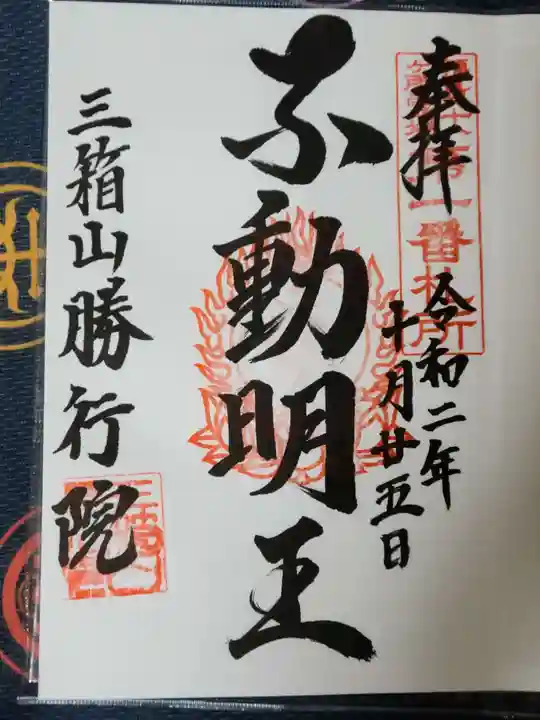 奉拝
第一番札所
令和二年
十月廿五日
不動明王
三箱山勝行院